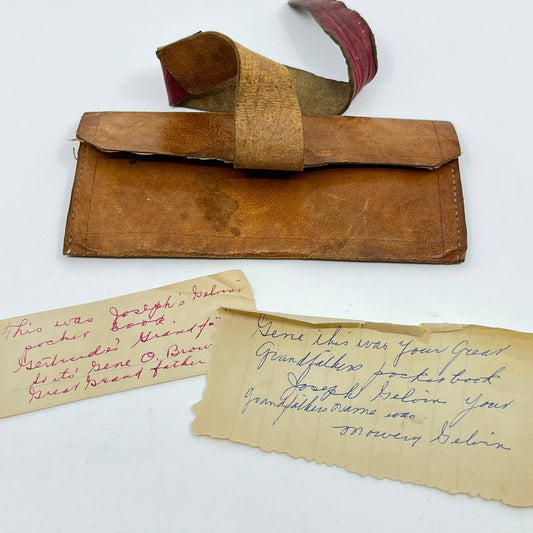 This was Joseph's Gelvin's
pocket book.
Gertrude's Grandfa
& to Gene O. Brow
Great Grand father
Gene this was your Great
Grandfathers pocketbook
Joseph Gelvin your
Grandfathers name was.
Mowery Gelvin